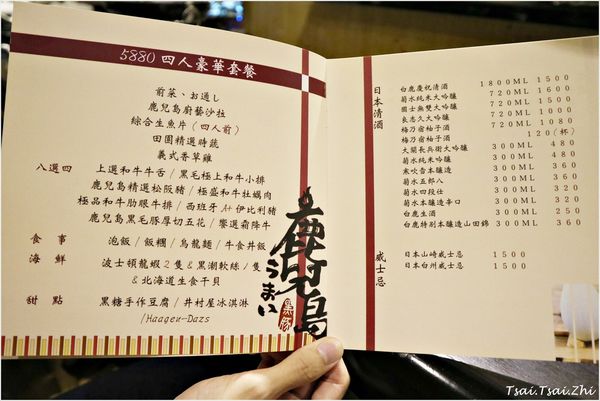 5880 四人豪華套餐
前菜、お通し
鹿兒島廚藝沙拉
綜合生魚片（四人前）
田園精選時蔬
義式香草雞
八選四
上選和牛牛舌／黑毛極上和牛小排
鹿兒島精選松阪豬／極盛和牛牡蠣肉
極品和牛肋眼牛排／西班牙 A+ 伊比利豬
鹿兒島黑毛豚厚切五花／饗選霜降牛
食 事
泡飯／飯糰／烏龍麵／牛食丼飯
海 鮮
波士頓龍蝦2隻＆黑潮軟絲1隻
＆北海道生食干貝
甜 點
黑糖手作豆腐／井村屋冰淇淋
/Haagen-Dazs
鹿兒島
うまい
黑豚
日本清酒
白鹿慶祝清酒 1800ML 1500
菊水純米大吟釀 720ML 1600
國士無雙大吟釀 720ML 1500
良志久大吟釀 720ML 1000
梅乃宿柚子酒 720ML 1080
梅乃宿柚子酒 120(杯)
大關長兵衛大吟釀 300ML 480
菊水純米吟釀 300ML 480
寒吹香本釀造 300ML 360
菊水五郎八 300ML 360
菊水四段仕 300ML 360
菊水本釀造辛口 300ML 320
白鹿生酒 300ML 250
白鹿特別本釀造山田錦 300ML 360
威士忌
日本山崎威士忌 1500
日本白州威士忌 1500
Tsai.Tsai.Zhi